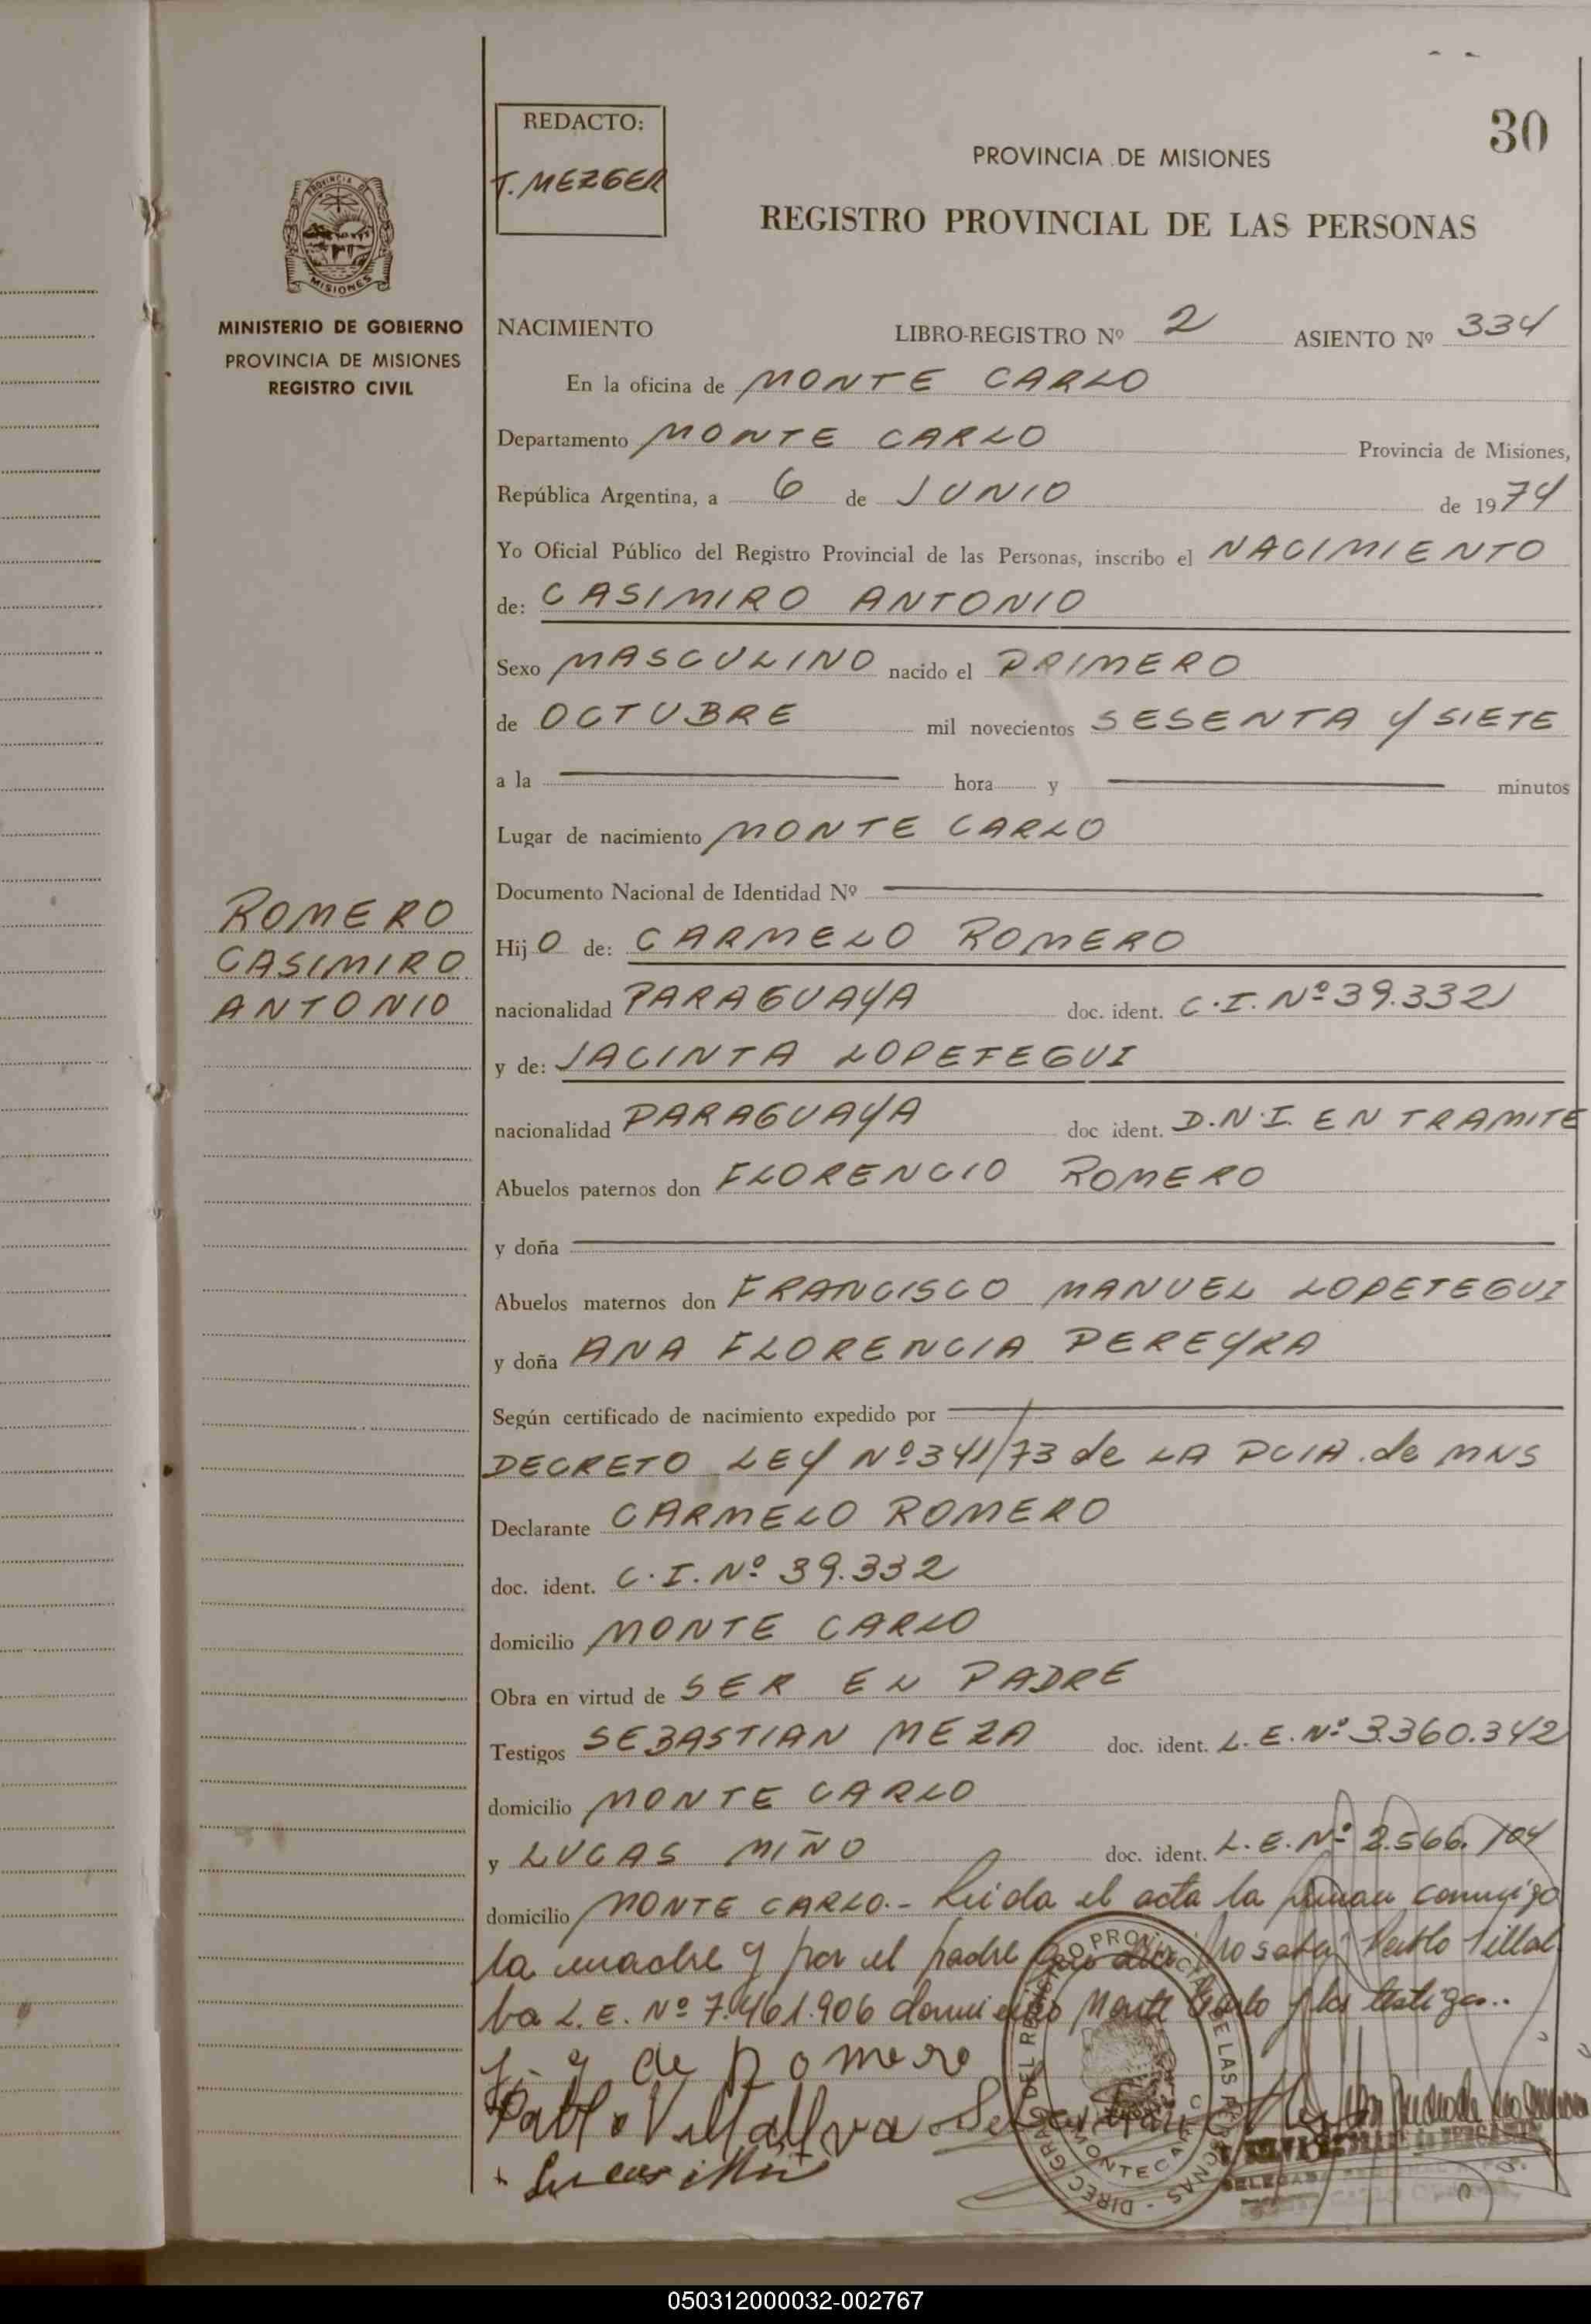 30
REDACTO:
T. MEZGER
PROVINCIA DE MISIONES
REGISTRO PROVINCIAL DE LAS PERSONAS
PROVINCIA DE
MISIONES
MINISTERIO DE GOBIERNO
PROVINCIA DE MISIONES
REGISTRO CIVIL
NACIMIENTO LIBRO-REGISTRO Nº 2 ASIENTO Nº 334
En la oficina de MONTE CARLO
Departamento MONTE CARLO Provincia de Misiones,
República Argentina, a 6 de JUNIO de 1974
Yo Oficial Público del Registro Provincial de las Personas, inscribo el NACIMIENTO
de: CASIMIRO ANTONIO
Sexo MASCULINO nacido el PRIMERO
de OCTUBRE mil novecientos SESENTA Y SIETE
a la hora y minutos
Lugar de nacimiento MONTE CARLO
Documento Nacional de Identidad Nº
ROMERO
CASIMIRO
ANTONIO
Hij O de: CARMELO ROMERO
nacionalidad PARAGUAYA doc. ident. C.I. Nº 39.332
y de: JACINTA LOPETEGUI
nacionalidad PARAGUAYA doc ident. D.N.I. EN TRAMITE
Abuelos paternos don FLORENCIO ROMERO
y doña
Abuelos maternos don FRANCISCO MANUEL LOPETEGUI
y doña ANA FLORENCIA PEREYRA
Según certificado de nacimiento expedido por
DECRETO LEY Nº 341/73 de LA PCIA. de MNS
Declarante CARMELO ROMERO
doc. ident. C.I. Nº 39.332
domicilio MONTE CARLO
Obra en virtud de SER EL PADRE
Testigos SEBASTIAN MEZA doc. ident. L.E. Nº 3.360.342
domicilio MONTE CARLO
y LUCAS MIÑO doc. ident. L.E. Nº 2.566.104
domicilio MONTE CARLO.- Leida el acta la firman conmigo
la madre y por el padre que dice no saber Pablo Villal
ba L.E. Nº 7.461.906 domicilio Monte Carlo y los testigos..
de Romero
Pablo Villallva Sebastian
Lucas Miño
DIREC. GRAL. DEL REGISTRO PROVINCIAL DE LAS PERSONAS
MONTECARLO
050312000032-002767